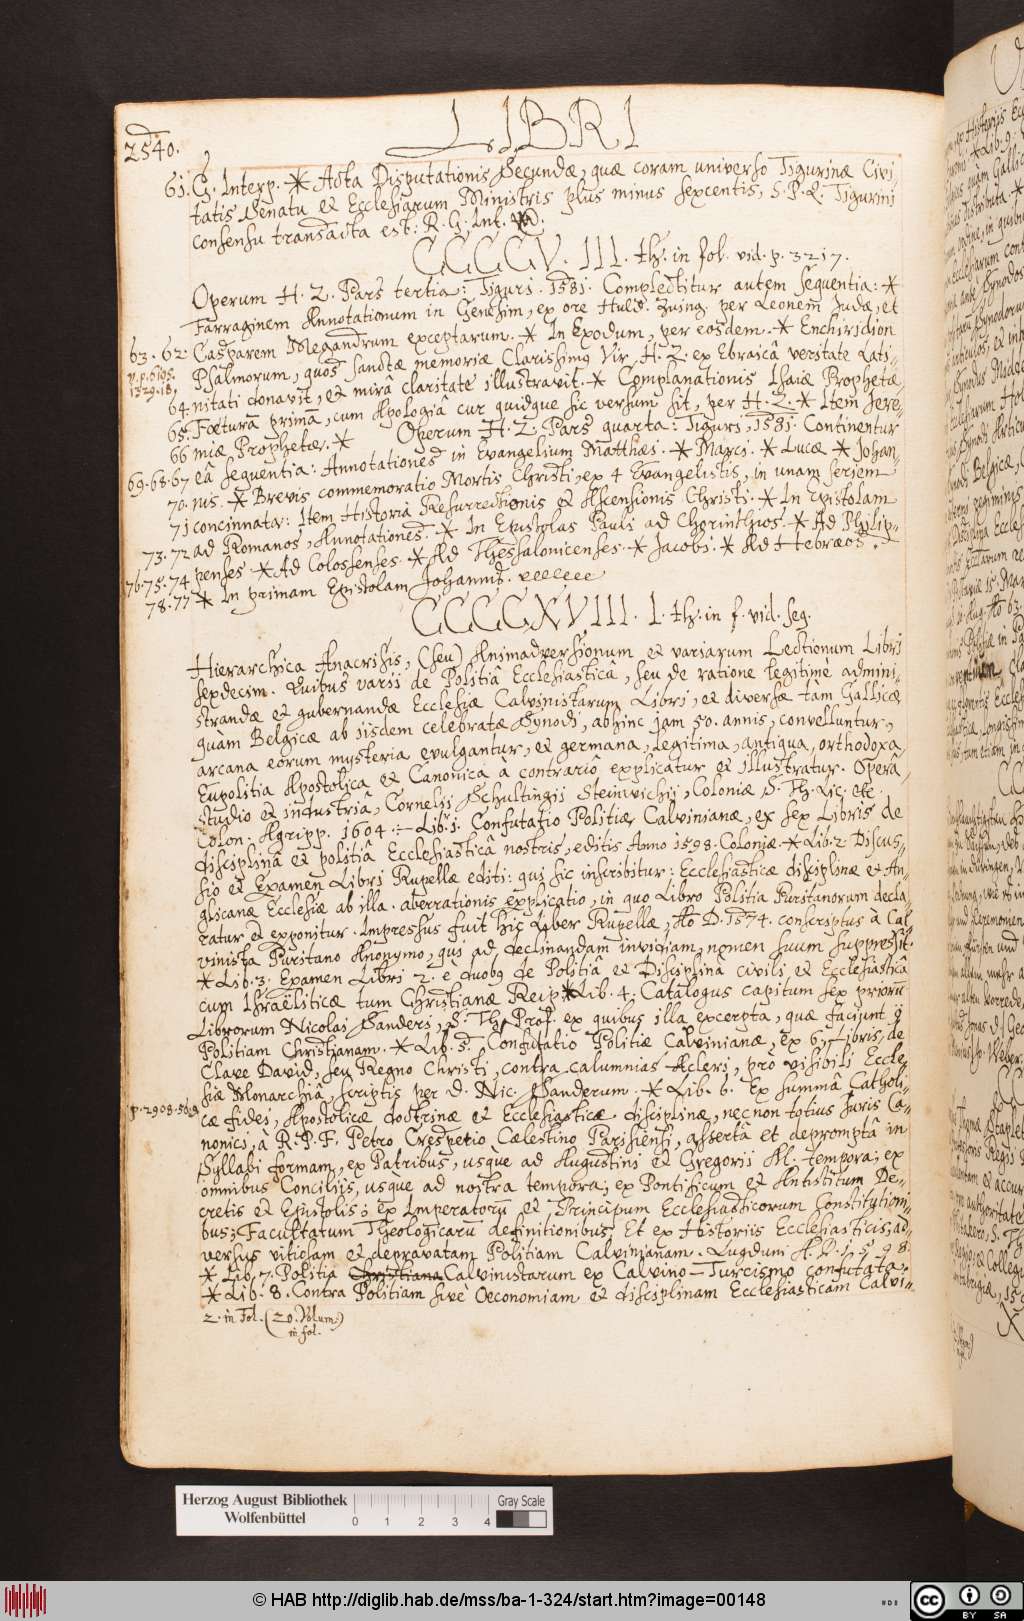 LIBRI
2540.
61. G. Interp. * Acta Disputationis Secundæ, quæ coram universo Tigurinæ Civi-
tatis Senatu et Ecclesiarum Ministris plus minus sexcentis, S. P. Q. Tigurini
consensu transacta est: R. G. Int.
CCCCV. III. th. in fol. vid. p. 3217.
Operum H. Z. Pars tertia: Tiguri. 1581. Complectitur autem sequentia: *
Farraginem Annotationum in Genesim, ex ore Huld. Zuing. per Leonem Judæ, et
63. 62 Casparem Megandrum exceptarum. * In Exodum, per eosdem. * Enchiridion
Psalmorum, quos sanctæ memoriæ Clarissimus Vir, H. Z. ex Ebraicâ veritate Lati-
1529. 18.
64. nitati donavit, et mirâ claritate illustravit. * Complanationis Isaiæ Prophetæ,
65. Fœturâ primâ, cum Apologiâ cur quidque sic versum sit, per H. Z. * Item Jere-
66 miæ Prophetæ. * Operum H. Z. Pars quarta: Tiguri, 1581. Continentur
69. 68. 67 eâ sequentia: Annotationes in Evangelium Matthæi. * Marci. * Lucæ * Johan-
70. nis. * Brevis commemoratio Mortis Christi, ex 4 Evangelistis, in unam seriem
71 concinnata: Item Historia Resurrectionis et Ascensionis Christi. * In Epistolam
73. 72 ad Romanos, Annotationes. * In Epistolas Pauli ad Chorinthios. * Ad Philip-
76. 75. 74 penses. * Ad Colossenses. * Ad Thessalonicenses. * Jacobi. * Ad Hebræos.
78. 77 * In primam Epistolam Johannis.
CCCCXVIII. I. th. in f. vid. seg.
Hierarchica Anacrisis, (seu) Animadversionum et variarum Lectionum Libri
sexdecim. Quibus varii de Politiâ Ecclesiasticâ, seu de ratione legitimè admini-
strandæ et gubernandæ Ecclesiæ Calvinistarum Libri, et diversæ tàm Gallicæ
quàm Belgicæ ab iisdem celebratæ Synodi, abhinc jam 50. annis, convelluntur,
arcana eorum mysteria evulgantur, et germana, legitima, antiqua, orthodoxa,
Eupolitia Apostolica et Canonica à contrariô explicatur et illustratur. Operâ,
studio et industriâ, Cornelii Schultingii Steinvichii, Coloniæ S. Th. Lic. etc.
Colon. Agripp. 1604. Lib. 1. Confutatio Politiæ Calvinianæ, ex sex Libris de
disciplinâ et politiâ Ecclesiasticâ nostris, editis Anno 1598. Coloniæ. * Lib. 2 Discus-
sio et Examen Libri Rupellæ editi: qui sic inscribitur: Ecclesiasticæ disciplinæ et An-
glicanæ Ecclesiæ ab illa. aberrationis explicatio, in quo Libro Politia Puritanorum decla-
ratur et exponitur. Impressus fuit hic Liber Rupellæ, Ao D. 1574. conscriptus à Cal-
vinista Puritano Anonymo, qui ad declinandam invidiam, nomen suum suppressit.
* Lib. 3. Examen Libri 2. e duobus de Politiâ et Disciplinâ civili et Ecclesiasticâ
cum Israëliticæ tum Christianæ Reip. * Lib. 4. Catalogus capitum sex priorū
Librorum Nicolai Sanderi, S. Th. Prof. ex quibus illa excerpta, quæ faciunt
Politiam Christianam. * Lib. 5. Confutatio Politiæ Calvinianæ, ex 6. Libris, de
Clave David, seu Regno Christi, contra calumnias Acleri, pro visibili Eccle-
siæ Monarchiâ, scriptis per D. Nic. Sanderum. * Lib. 6. Ex summâ Catholi-
cæ fidei, Apostolicæ doctrinæ et Ecclesiasticæ disciplinæ, nec non totius Juris Ca-
nonici, à R. P. F. Petro Crespetio Cælestino Parisiensi, assertâ et depromptâ in
Syllabi formam, ex Patribus, usque ad Augustini et Gregorii M. tempora; ex
omnibus Conciliis, usque ad nostra tempora; ex Pontificum et Antistitum De-
cretis et Epistolis; ex Imperatorū et Principum Ecclesiasticorum Constitutioni-
bus; Facultatum Theologicarū definitionibus; Et ex Historiis Ecclesiasticis, ad-
versus vitiosam et depravatam Politiam Calvinianam. Lugduni A. D. 1598.
* Lib. 7. Politia Christiana Calvinistarum ex Calvino-Turcismo confutata.
* Lib. 8. Contra Politiam sive Oeconomiam et disciplinam Ecclesiasticam Calvi-
2. in Fol. (20. Volum.)
in fol.
Herzog August Bibliothek
Wolfenbüttel
0 1 2 3 4
Gray Scale
© HAB http://diglib.hab.de/mss/ba-1-324/start.htm?image=00148
cc BY SA